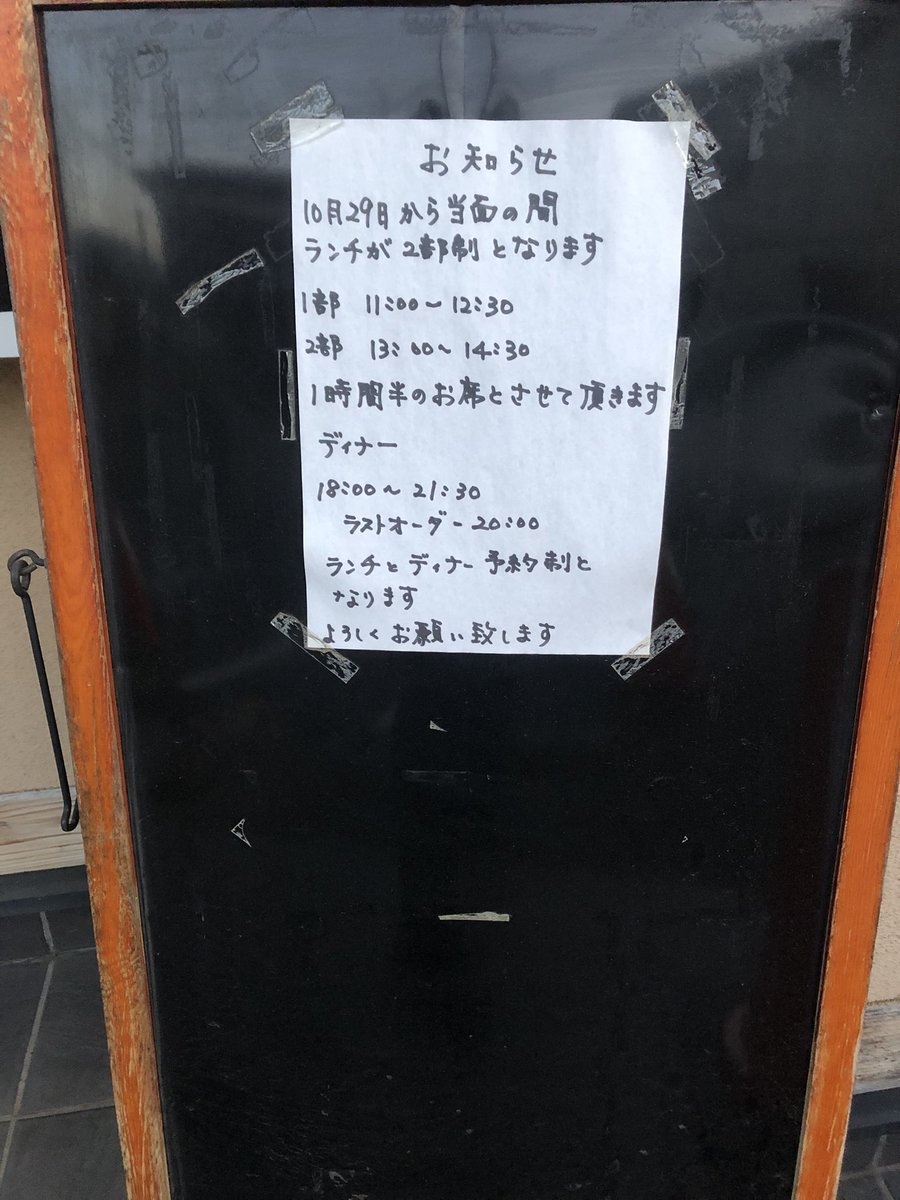 お知らせ
10月29日から当面の間
ランチが2部制となります
1部 11:00〜12:30
2部 13:00〜14:30
1時間半のお席とさせて頂きます
ディナー
18:00〜21:30
ラストオーダー20:00
ランチとディナー予約制と
なります
よろしくお願い致します